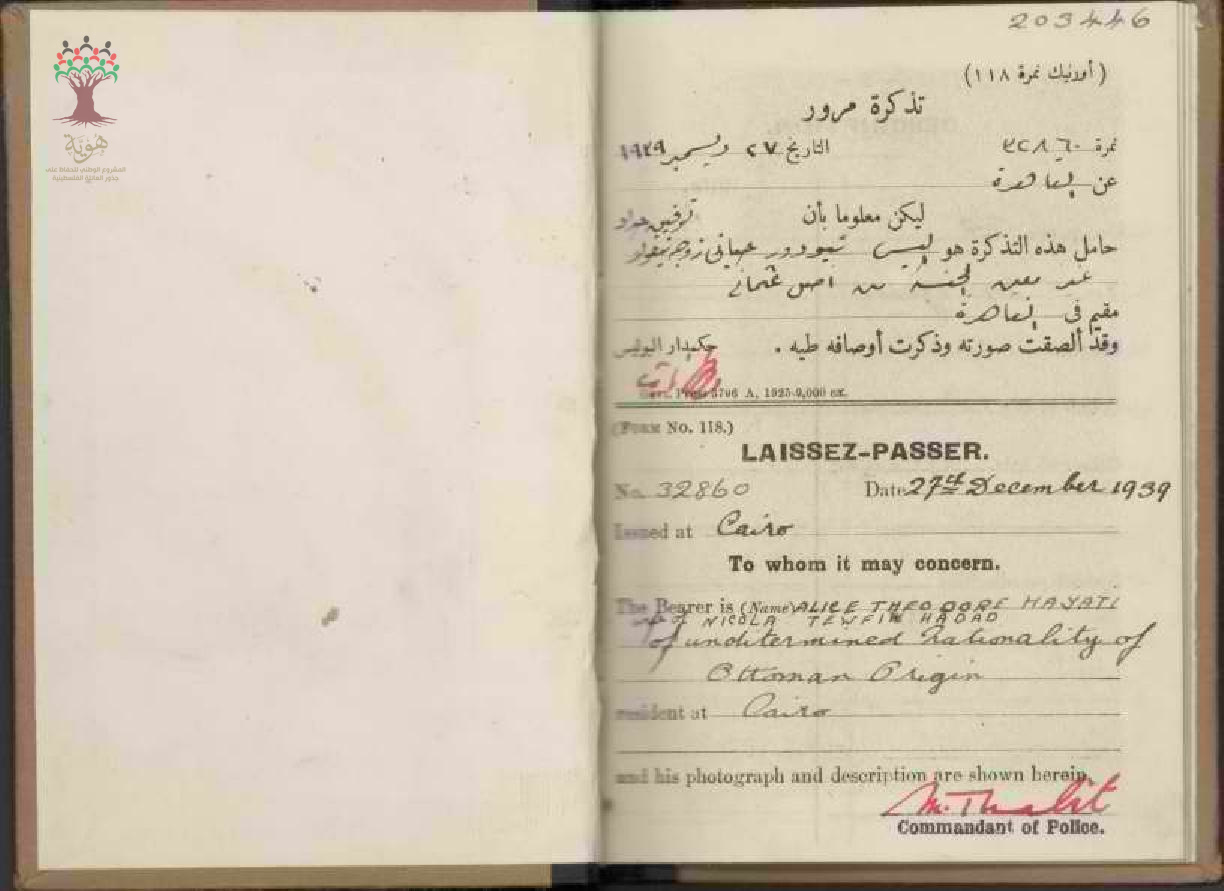 هُوِيَّة
المشروع الوطني للحفاظ على
جذور العائلة الفلسطينية
203446
(أورنيك نمرة ١١٨)
تذكرة مرور
نمرة ٣٢٨٦٠ التاريخ ٢٧ ديسمبر ١٩٣٩
عن القاهرة
ليكن معلوما بأن
حامل هذه التذكرة هو أليس تيودور حياتى زوجة نيقولا
توفيق حداد
غير معين الجنسية من أصل عثمانى
مقيم فى القاهرة
وقد ألصقت صورته وذكرت أوصافه طيه .
حكمدار البوليس
Govt. Press 5796 A, 1925-9,000 ex.
(FORM No. 118.)
LAISSEZ-PASSER.
No. 32860 Date 27th December 1939
Issued at Cairo
To whom it may concern.
The Bearer is (Name) ALICE THEODORE HAYATI
wife of NICOLA TEWFIK HADAD
of undetermined nationality of
Ottoman Origin
resident at Cairo
and his photograph and description are shown herein.
M. Thabit
Commandant of Police.